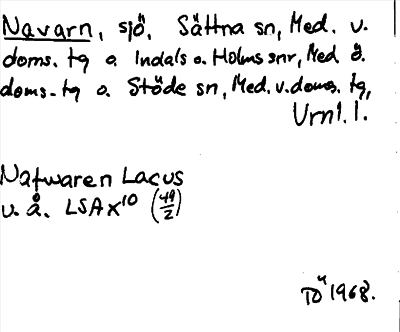 Navarn, sjö, Sättna sn, Med. v.
doms. tg o. Indals o. Holms snr, Med ö.
doms. tg o. Stöde sn, Med. v. doms. tg,
Vrnl. l.
Nafwaren Lacus
u. å. LSA X¹⁰ (49/2)
TÖ 1968.